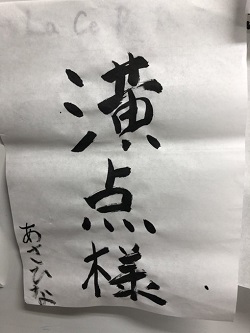 La Co
潢点様
あさひな